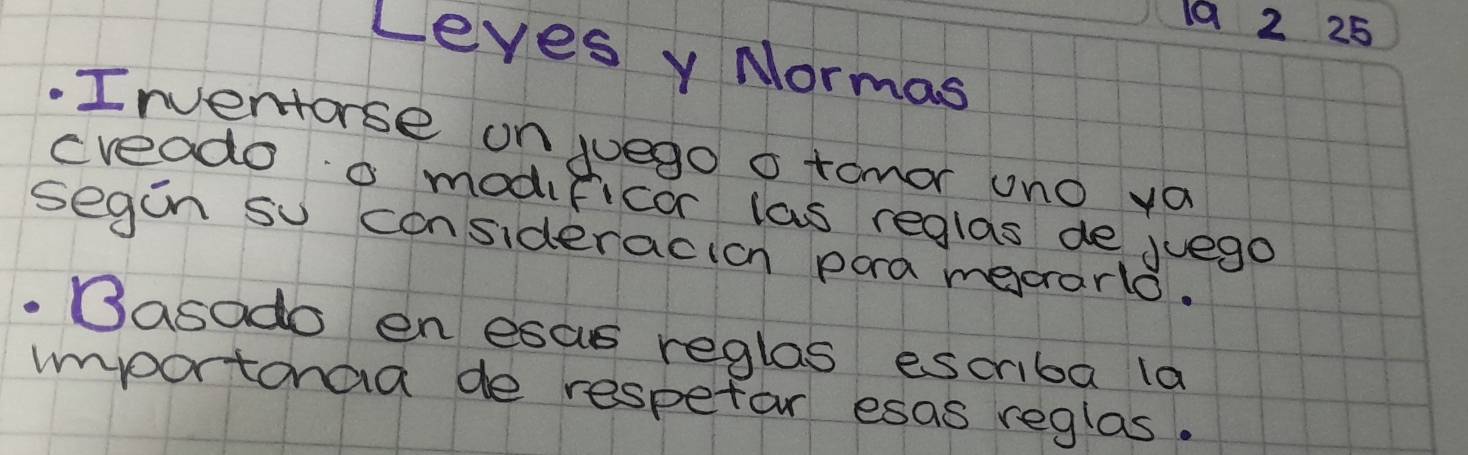 19 2 25
Leyes y Normas
. Inventarse un juego o tomar uno ya
creado . o modificar las reglas de juego
según su consideración para mejorarlo.
. Basado en esas reglas escriba la
importancia de respetar esas reglas.